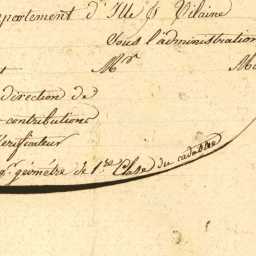 epartement d'Ille & Vilaine
sous l'administration
Mr
direction de
contributions
Vérificateur
géomêtre de 1re Classe du cadastre